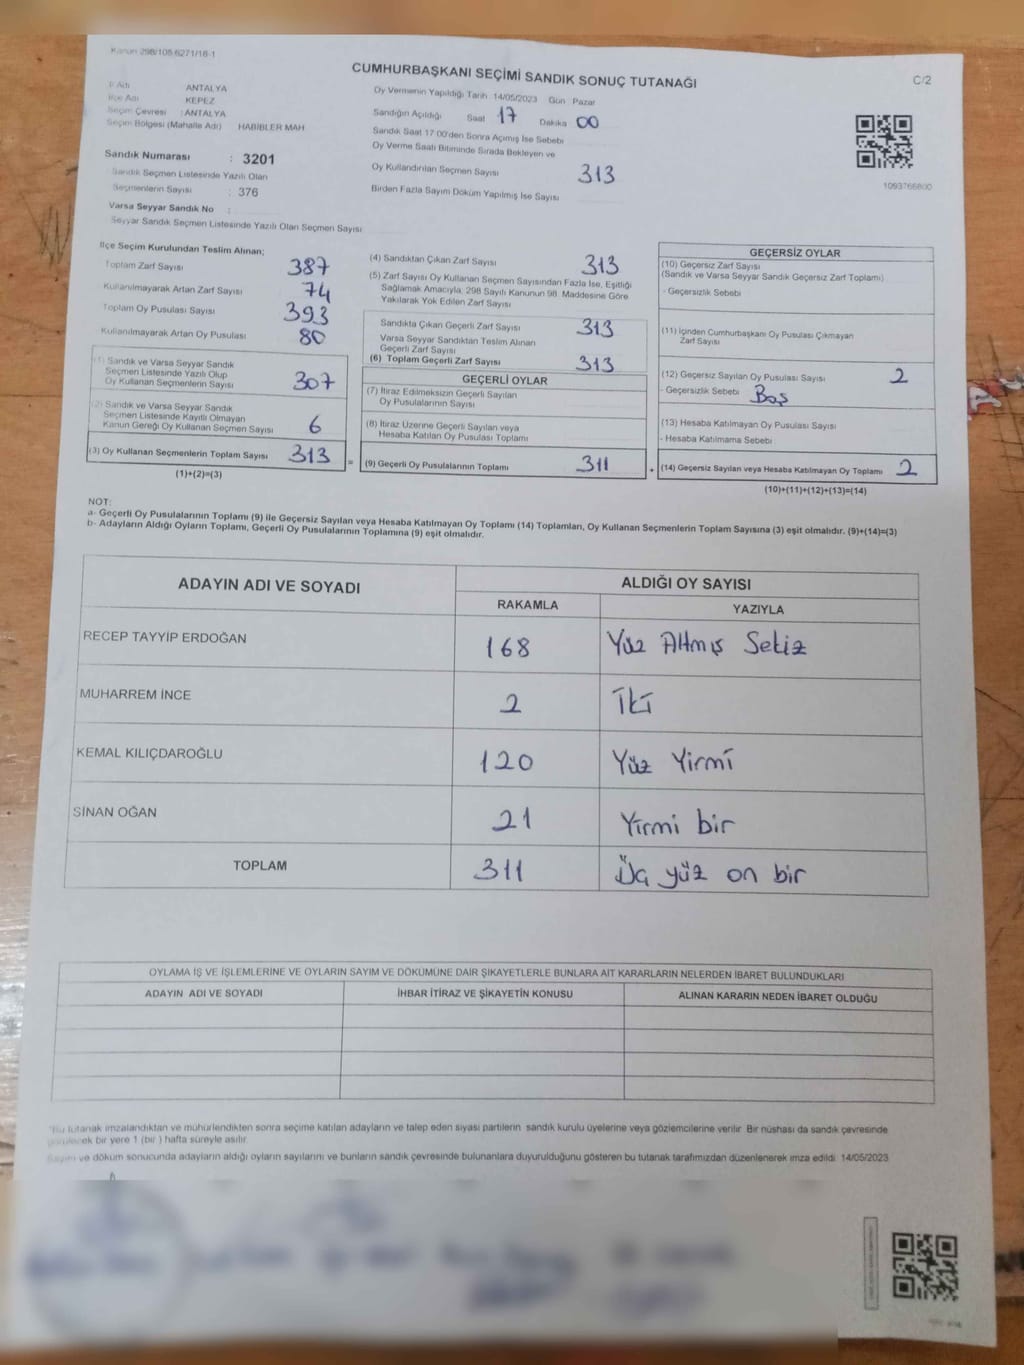 Kanun 298/105 6271/16-1
CUMHURBAŞKANI SEÇİMİ SANDIK SONUÇ TUTANAĞI
C/2
İl Adı ANTALYA
İlçe Adı KEPEZ
Seçim Çevresi : ANTALYA
Seçim Bölgesi (Mahalle Adı) HABİBLER MAH
Sandık Numarası : 3201
Sandık Seçmen Listesinde Yazılı Olan
Seçmenlerin Sayısı : 376
Varsa Seyyar Sandık No :
Seyyar Sandık Seçmen Listesinde Yazılı Olan Seçmen Sayısı
Oy Vermenin Yapıldığı Tarih 14/05/2023 Gün Pazar
Sandığın Açıldığı Saat 17 Dakika 00
Sandık Saat 17 00'den Sonra Açımış İse Sebebi
Oy Verme Saati Bitiminde Sırada Bekleyen ve
Oy Kullandırılan Seçmen Sayısı 313
Birden Fazla Sayım Döküm Yapılmış İse Sayısı
1093766800
İlçe Seçim Kurulundan Teslim Alınan;
Toplam Zarf Sayısı 387
Kullanılmayarak Artan Zarf Sayısı 74
Toplam Oy Pusulası Sayısı 393
Kullanılmayarak Artan Oy Pusulası 80
(1) Sandık ve Varsa Seyyar Sandık
Seçmen Listesinde Yazılı Olup
Oy Kullanan Seçmenlerin Sayısı 307
(2) Sandık ve Varsa Seyyar Sandık
Seçmen Listesinde Kayıtlı Olmayan
Kanun Gereği Oy Kullanan Seçmen Sayısı 6
(3) Oy Kullanan Seçmenlerin Toplam Sayısı 313
(1)+(2)=(3)
=
(4) Sandıktan Çıkan Zarf Sayısı 313
(5) Zarf Sayısı Oy Kullanan Seçmen Sayısından Fazla İse, Eşitliği
Sağlamak Amacıyla, 298 Sayılı Kanunun 98. Maddesine Göre
Yakılarak Yok Edilen Zarf Sayısı
Sandıkta Çıkan Geçerli Zarf Sayısı 313
Varsa Seyyar Sandıktan Teslim Alınan
Geçerli Zarf Sayısı
(6) Toplam Geçerli Zarf Sayısı 313
GEÇERLİ OYLAR
(7) İtiraz Edilmeksizin Geçerli Sayılan
Oy Pusulalarının Sayısı
(8) İtiraz Üzerine Geçerli Sayılan veya
Hesaba Katılan Oy Pusulası Toplamı
(9) Geçerli Oy Pusulalarının Toplamı 311
+
GEÇERSİZ OYLAR
(10) Geçersiz Zarf Sayısı
(Sandık ve Varsa Seyyar Sandık Geçersiz Zarf Toplamı)
- Geçersizlik Sebebi
(11) İçinden Cumhurbaşkanı Oy Pusulası Çıkmayan
Zarf Sayısı
(12) Geçersiz Sayılan Oy Pusulası Sayısı 2
- Geçersizlik Sebebi Boş
(13) Hesaba Katılmayan Oy Pusulası Sayısı
- Hesaba Katılmama Sebebi
(14) Geçersiz Sayılan veya Hesaba Katılmayan Oy Toplamı 2
(10)+(11)+(12)+(13)=(14)
NOT:
a- Geçerli Oy Pusulalarının Toplamı (9) ile Geçersiz Sayılan veya Hesaba Katılmayan Oy Toplamı (14) Toplamları, Oy Kullanan Seçmenlerin Toplam Sayısına (3) eşit olmalıdır. (9)+(14)=(3)
b- Adayların Aldığı Oyların Toplamı, Geçerli Oy Pusulalarının Toplamına (9) eşit olmalıdır.
ADAYIN ADI VE SOYADI
ALDIĞI OY SAYISI
RAKAMLA YAZIYLA
RECEP TAYYİP ERDOĞAN 168 Yüz Altmış Sekiz
MUHARREM İNCE 2 İki
KEMAL KILIÇDAROĞLU 120 Yüz Yirmi
SİNAN OĞAN 21 Yirmi bir
TOPLAM 311 Üç yüz on bir
OYLAMA İŞ VE İŞLEMLERİNE VE OYLARIN SAYIM VE DÖKÜMÜNE DAİR ŞİKAYETLERLE BUNLARA AİT KARARLARIN NELERDEN İBARET BULUNDUKLARI
ADAYIN ADI VE SOYADI İHBAR İTİRAZ VE ŞİKAYETİN KONUSU ALINAN KARARIN NEDEN İBARET OLDUĞU
*Bu tutanak imzalandıktan ve mühürlendikten sonra seçime katılan adayların ve talep eden siyasi partilerin sandık kurulu üyelerine veya gözlemcilerine verilir. Bir nüshası da sandık çevresinde
görülecek bir yere 1 (bir ) hafta süreyle asılır.
Sayım ve döküm sonucunda adayların aldığı oyların sayılarını ve bunların sandık çevresinde bulunanlara duyurulduğunu gösteren bu tutanak tarafımızdan düzenlenerek imza edildi. 14/05/2023